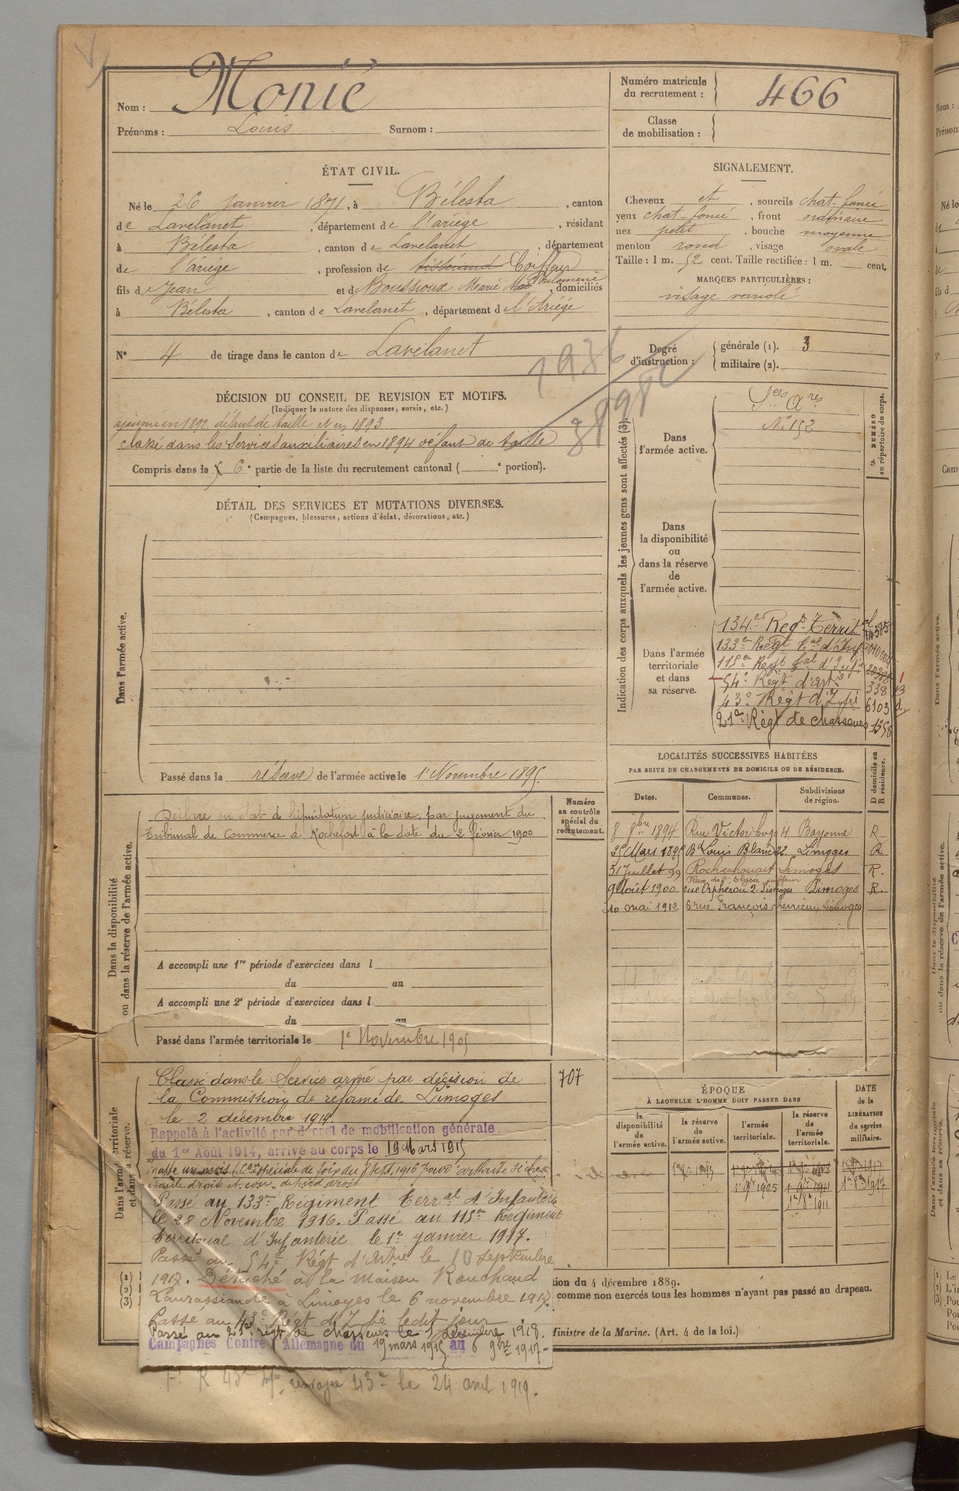 Nom : Monié
Prénoms : Louis Surnom :
Numéro matricule du recrutement : 466
Classe de mobilisation :
ÉTAT CIVIL.
Né le 26 janvier 1871, à Bélesta, canton
de Lavelanet, département de l'ariège, résidant
à Bélesta, canton de Lavelanet, département
de l'ariège, profession de Coiffeur
fils de Jean et de Boussioux Marie Philomène, domiciliés
à Bélesta, canton de Lavelanet, département de l'Ariège
N° 4 de tirage dans le canton de Lavelanet
SIGNALEMENT.
Cheveux et, sourcils chat-foncé
yeux chat-foncé, front ordinaire
nez petit, bouche moyenne
menton rond, visage ovale
Taille : 1 m. 52 cent. Taille rectifiée : 1 m. cent.
MARQUES PARTICULIÈRES :
visage variolé
Degré d'instruction : générale (1). 3
militaire (2).
1936
DÉCISION DU CONSEIL DE REVISION ET MOTIFS.
(Indiquer la nature des dispenses, sursis, etc.)
ajourné en 1892 défaut de taille et en 1893
classé dans les services auxiliaires en 1894 défaut de taille
Compris dans la 6e partie de la liste du recrutement cantonal ( e portion).
DÉTAIL DES SERVICES ET MUTATIONS DIVERSES.
(Campagnes, blessures, actions d'éclat, décorations, etc.)
Dans l'armée active.
Passé dans la réserve de l'armée active le 1er Novembre 1895
Indication des corps auxquels les jeunes gens sont affectés (3).
NUMÉRO au répertoire du corps.
Dans l'armée active.
Sces Ares
N° 152
Dans la disponibilité ou dans la réserve de l'armée active.
Dans l'armée territoriale et dans sa réserve.
134e Régt Territ
133e Régt tal d'Inf
115e Régt tal d'Inf
54e Régt d'art 338
43e Régt d'Infrie 6103
21e Régt de chasseurs 1598
LOCALITÉS SUCCESSIVES HABITÉES
PAR SUITE DE CHANGEMENTS DE DOMICILE OU DE RÉSIDENCE.
Dates. Communes. Subdivisions de région. D domicile ou R résidence.
8 8bre 1894 Rue Victor hugo 4 Bayonne R
25 Mars 1895 Bd Louis Blanc 22 Limoges R
31 Juillet 99 Rochechouart Limoges R.
9 Août 1900 2 Limoges Limoges R.
10 mai 1912 6 rue François Limoges
Dans la disponibilité ou dans la réserve de l'armée active.
Numéro au contrôle spécial du recrutement.
Déclaré en état de liquidation judiciaire, par jugement du
tribunal de Commerce de Rochefort à la date du 2 février 1900
A accompli une 1re période d'exercices dans l
du au
A accompli une 2e période d'exercices dans l
du au
Passé dans l'armée territoriale le 1er Novembre 1905
707
Dans l'armée territoriale et dans sa réserve.
Classé dans le Service armé par décision de
la Commission de réforme de Limoges
le 2 décembre 1914
Rappelé à l'activité par décret de mobilisation générale
du 1er Août 1914, arrivé au corps le 19 Mars 1915
Passé au 133me Régiment Terral d'Infanterie
le 28 Novembre 1916. Passé au 115me Régiment
territorial d'Infanterie le 1er janvier 1917.
Passé au 54e Régt d'Artie le 10 septembre
1917. Détaché à la maison Rouchaud
à Limoges le 6 novembre 1917.
Passé au 43e Régt d'Infrie le dit jour
Passé au 21e régt de chasseurs le 1 décembre 1918.
Campagnes Contre l'Allemagne du 19 mars 1915 au 6 9bre 1917-
R 43e Inf. 43e le 24 avril 1919.
ÉPOQUE
À LAQUELLE L'HOMME DOIT PASSER DANS
la disponibilité de l'armée active. la réserve de l'armée active. l'armée territoriale. la réserve de l'armée territoriale.
DATE de la LIBÉRATION du service militaire.
1er 9bre 1905
(1)
(2)
(3)
ion du 4 décembre 1889.
comme non exercés tous les hommes n'ayant pas passé au drapeau.
Ministre de la Marine. (Art. 4 de la loi.)